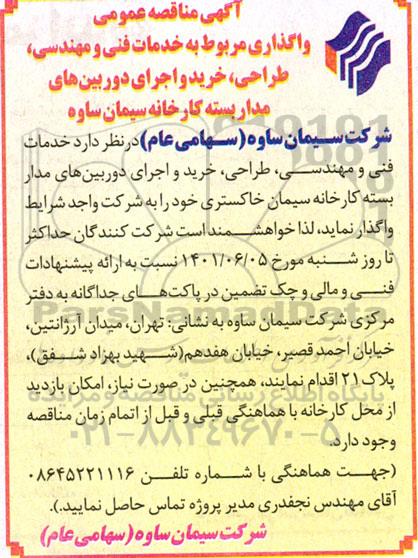 آگهی مناقصه عمومی
واگذاری مربوط به خدمات فنی و مهندسی،
طراحی، خرید و اجرای دوربین‌های
مدار بسته کارخانه سیمان ساوه
شرکت سیمان ساوه (سهامی عام) در نظر دارد خدمات
فنی و مهندسی، طراحی، خرید و اجرای دوربین‌های مدار
بسته کارخانه سیمان خاکستری خود را به شرکت واجد شرایط
واگذار نماید، لذا خواهشمند است شرکت کنندگان حداکثر
تا روز شنبه مورخ ۱۴۰۱/۰۶/۰۵ نسبت به ارائه پیشنهادات
فنی و مالی و چک تضمین در پاکت‌های جداگانه به دفتر
مرکزی شرکت سیمان ساوه به نشانی: تهران، میدان آرژانتین،
خیابان احمد قصیر، خیابان هفدهم(شهید بهزاد شفق)،
پلاک ۲۱ اقدام نمایند، همچنین در صورت نیاز، امکان بازدید
از محل کارخانه با هماهنگی قبلی و قبل از اتمام زمان مناقصه
وجود دارد.
(جهت هماهنگی با شماره تلفن ۰۸۶۴۵۲۲۱۱۱۶
آقای مهندس نجفدری مدیر پروژه تماس حاصل نمایید.).
شرکت سیمان ساوه (سهامی عام)
ParsNamadData
پایگاه اطلاع رسانی مناقصه و مزایده
۰۲۱-۸۸۳۴۹۶۷۰-۵